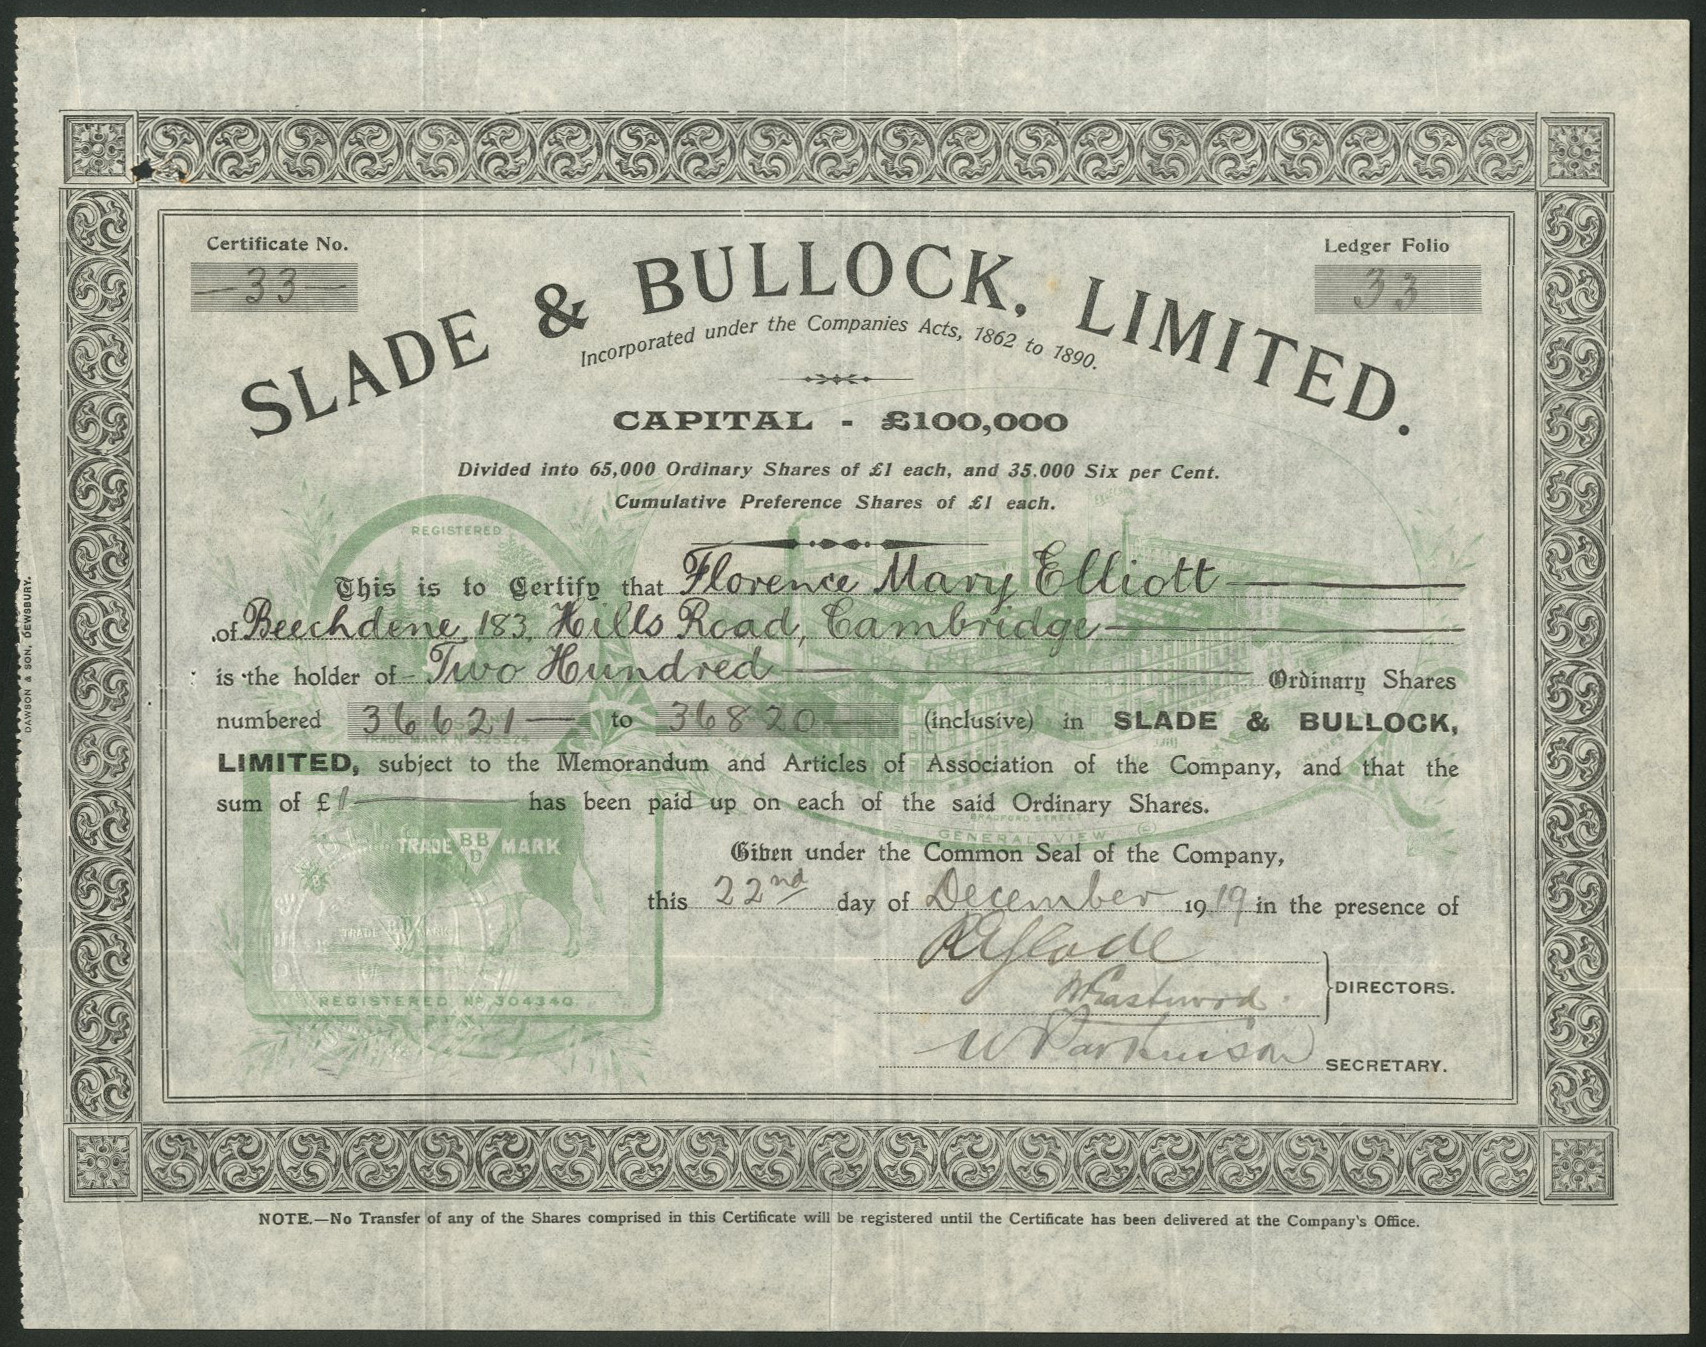 Certificate No.
— 33 —
Ledger Folio
33
SLADE & BULLOCK, LIMITED.
Incorporated under the Companies Acts, 1862 to 1890.
CAPITAL - £100,000
Divided into 65,000 Ordinary Shares of £1 each, and 35.000 Six per Cent.
Cumulative Preference Shares of £1 each.
REGISTERED
This is to Certify that Florence Mary Elliott
of Beechdene, 183, Hills Road, Cambridge
is the holder of Two Hundred Ordinary Shares
numbered 36621 — to 36820 — (inclusive) in SLADE & BULLOCK,
TRADE MARK No 325524
LIMITED, subject to the Memorandum and Articles of Association of the Company, and that the
sum of £1 has been paid up on each of the said Ordinary Shares.
BRADFORD STREET
GENERAL VIEW
TRADE BBD MARK
Given under the Common Seal of the Company,
this 22nd day of December 1919 in the presence of
TRADE MARK
REGISTERED. No 304340.
R Slade
W Eastwood.
DIRECTORS.
W Parkinson
SECRETARY.
NOTE.—No Transfer of any of the Shares comprised in this Certificate will be registered until the Certificate has been delivered at the Company's Office.
DAWSON & SON, DEWSBURY.